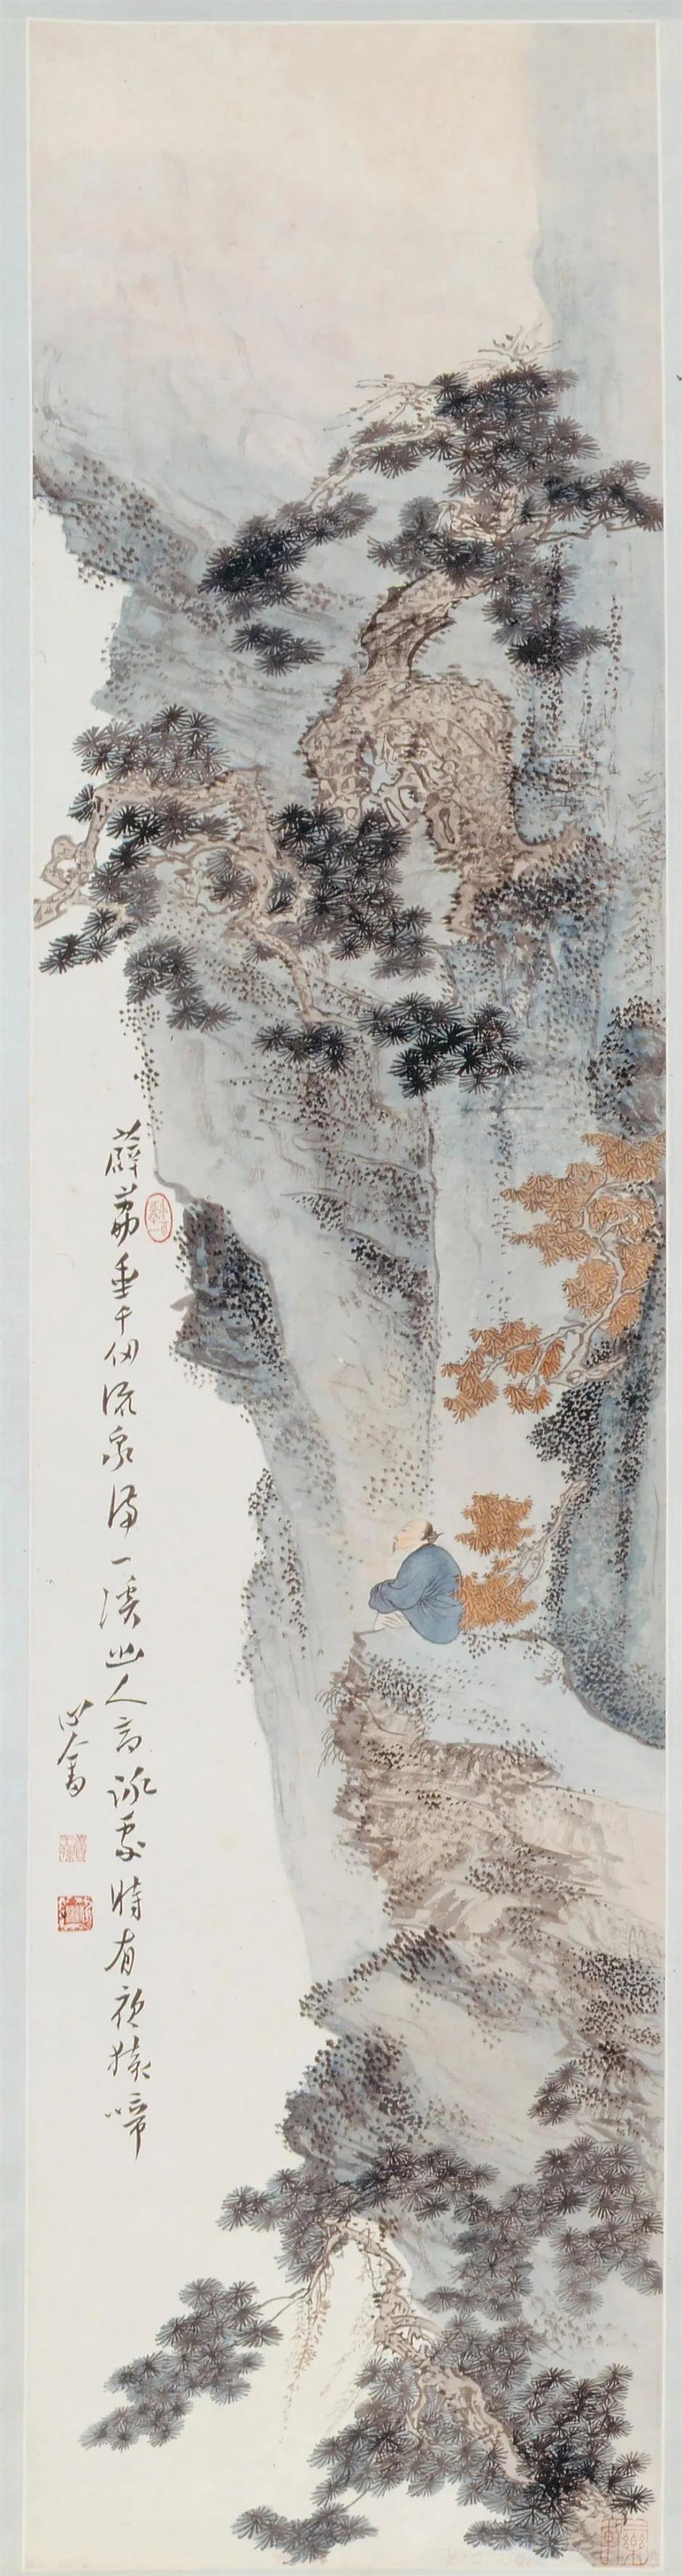 薜荔垂千仞流泉满一溪幽人高詠處時有夜猿啼
心畬